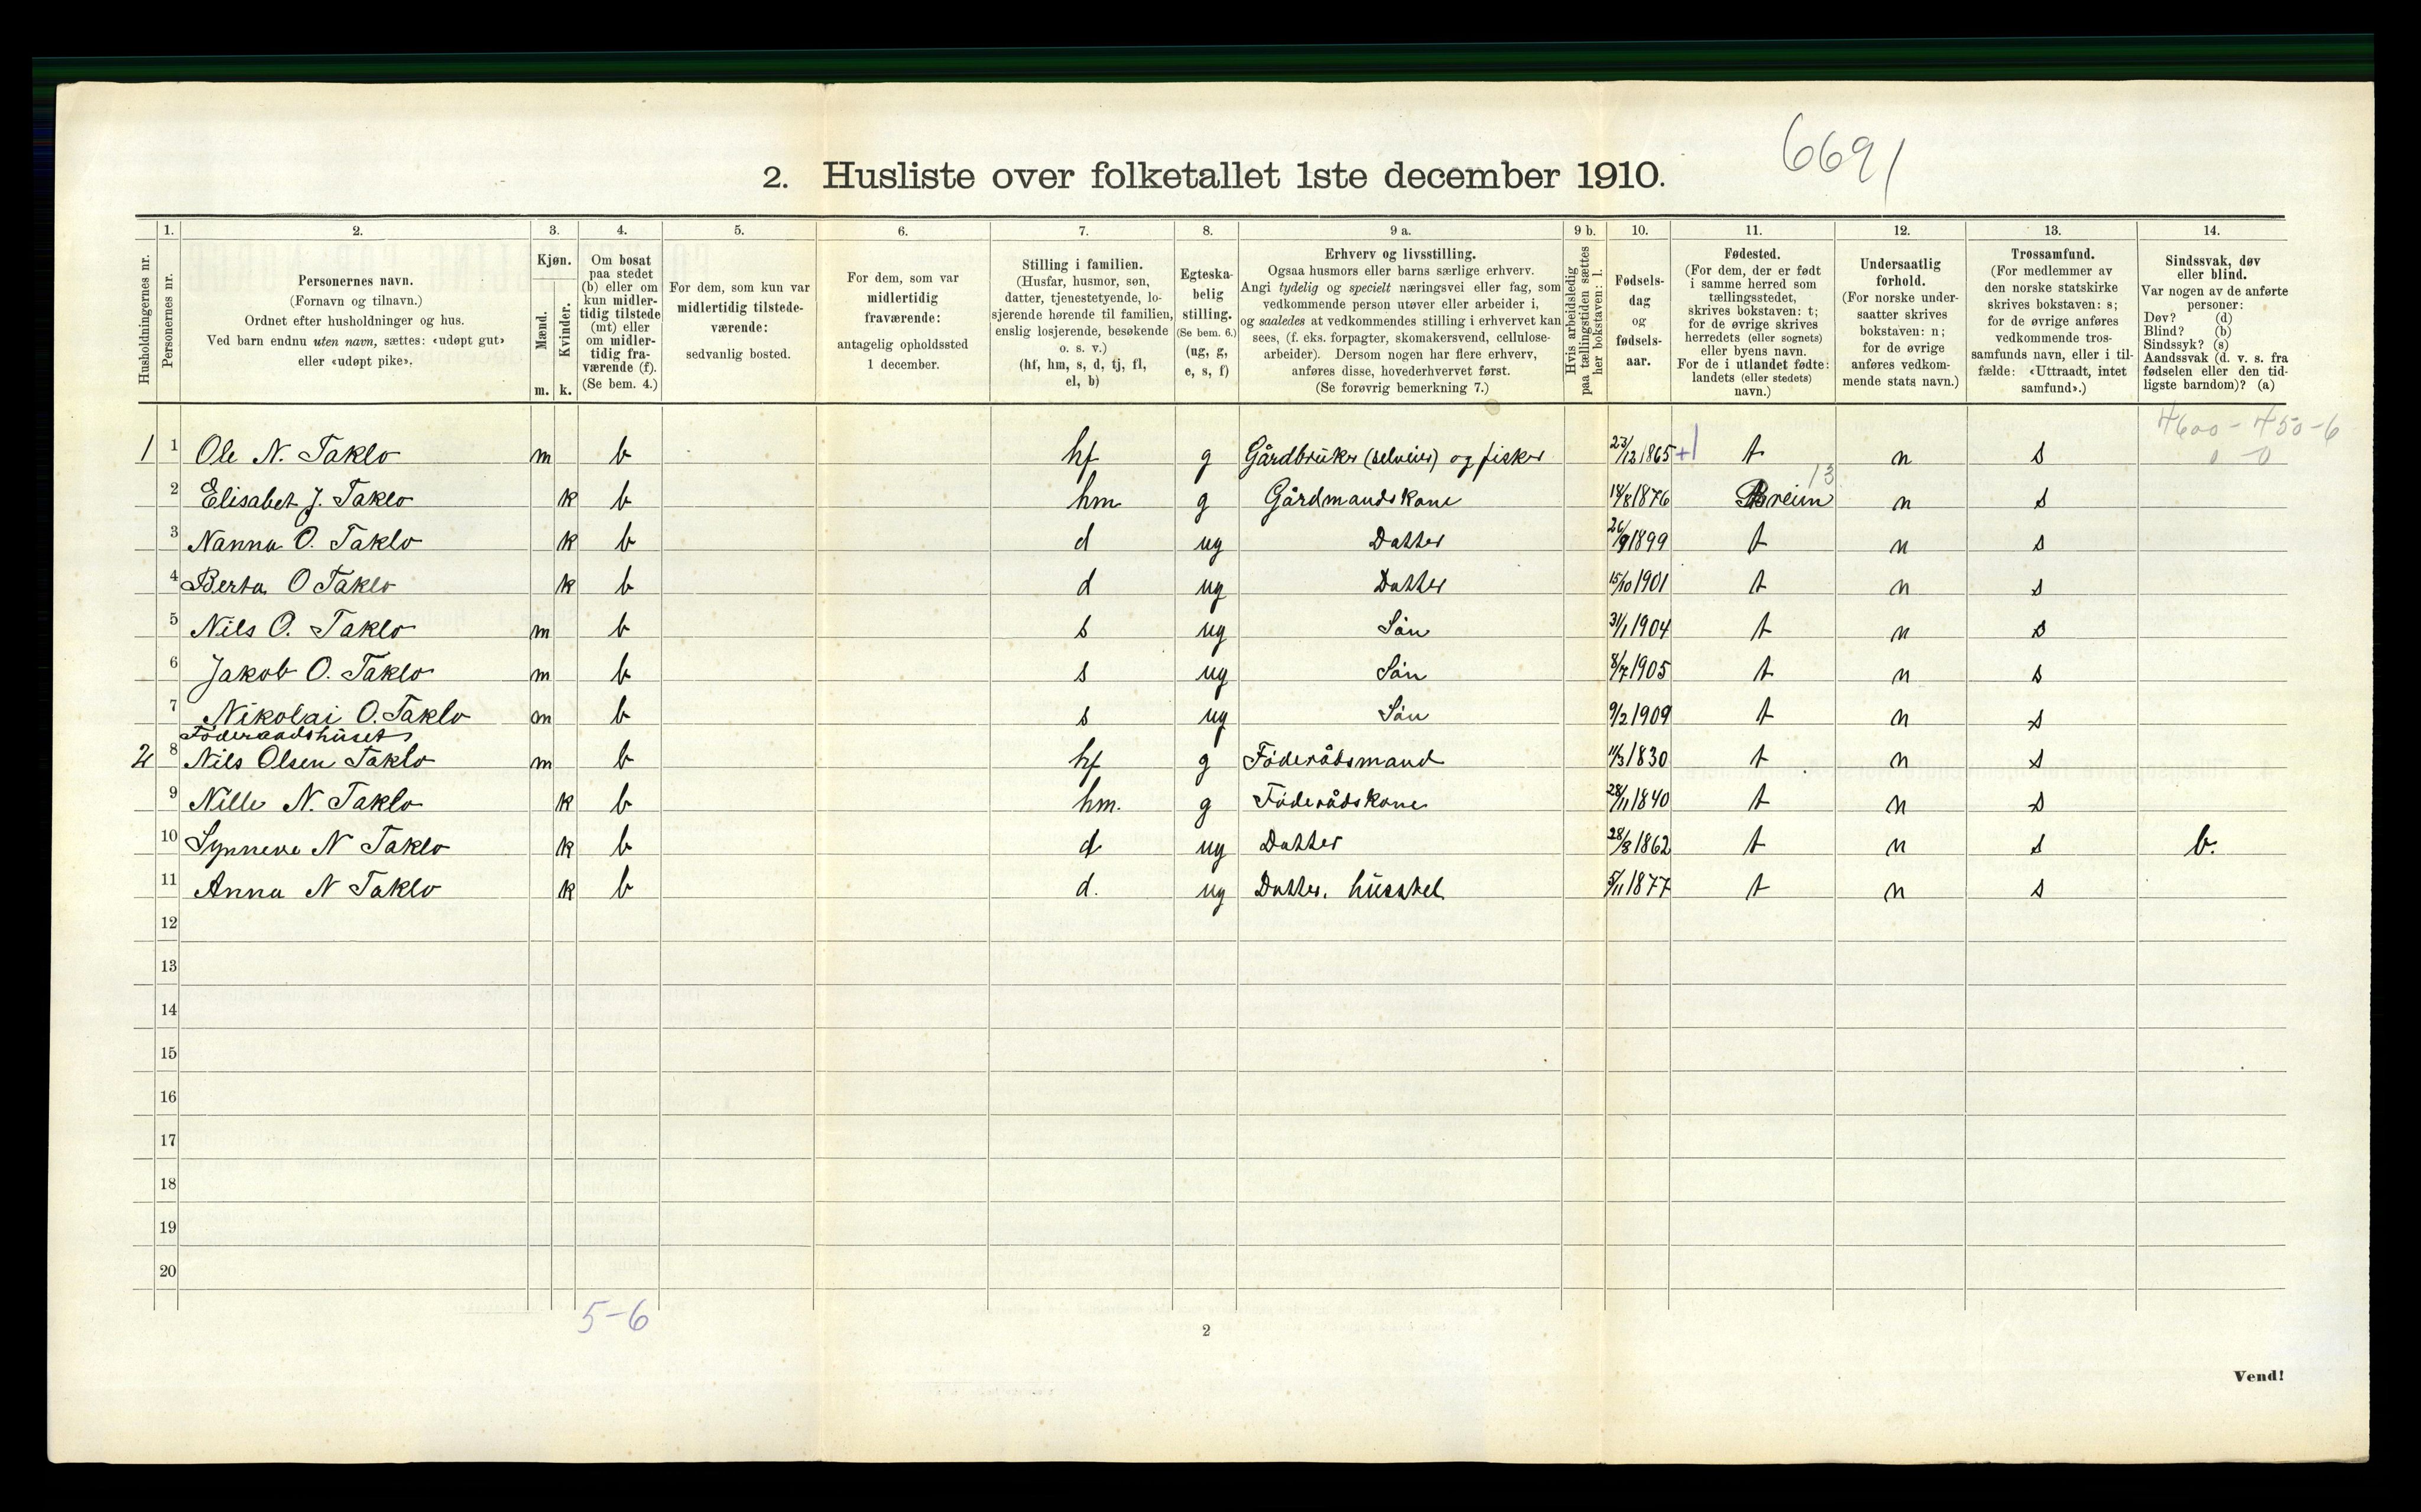 6691
2. Husliste over folketallet 1ste december 1910.
1. 2. 3. 4. 5. 6. 7. 8. 9 a. 9 b. 10. 11. 12. 13. 14.
Husholdningernes nr.
Personernes nr.
Personernes navn.
(Fornavn og tilnavn.)
Ordnet efter husholdninger og hus.
Ved barn endnu uten navn, sættes: «udøpt gut»
eller «udøpt pike».
Kjøn.
Mænd.
Kvinder.
m. k.
Om bosat
paa stedet
(b) eller om
kun midler-
tidig tilstede
(mt) eller
om midler-
tidig fra-
værende (f).
(Se bem. 4.)
For dem, som kun var
midlertidig tilstede-
værende:
sedvanlig bosted.
For dem, som var
midlertidig
fraværende:
antagelig opholdssted
1 december.
Stilling i familien.
(Husfar, husmor, søn,
datter, tjenestetyende, lo-
sjerende hørende til familien,
enslig losjerende, besøkende
o. s. v.)
(hf, hm, s, d, tj, fl,
el, b)
Egteska-
belig
stilling.
(Se bem. 6.)
(ug, g,
e, s, f)
Erhverv og livsstilling.
Ogsaa husmors eller barns særlige erhverv.
Angi tydelig og specielt næringsvei eller fag, som
vedkommende person utøver eller arbeider i,
og saaledes at vedkommendes stilling i erhvervet kan
sees, (f. eks. forpagter, skomakersvend, cellulose-
arbeider). Dersom nogen har flere erhverv,
anføres disse, hovederhvervet først.
(Se forøvrig bemerkning 7.)
Hvis arbeidsledig
paa tællingstiden sættes
her bokstaven: l.
Fødsels-
dag
og
fødsels-
aar.
Fødested.
(For dem, der er født
i samme herred som
tællingsstedet,
skrives bokstaven: t;
for de øvrige skrives
herredets (eller sognets)
eller byens navn.
For de i utlandet fødte:
landets (eller stedets)
navn.)
Undersaatlig
forhold.
(For norske under-
saatter skrives
bokstaven: n;
for de øvrige
anføres vedkom-
mende stats navn.)
Trossamfund.
(For medlemmer av
den norske statskirke
skrives bokstaven: s;
for de øvrige anføres
vedkommende tros-
samfunds navn, eller i til-
fælde: «Uttraadt, intet
samfund».)
Sindssvak, døv
eller blind.
Var nogen av de anførte
personer:
Døv? (d)
Blind? (b)
Sindssyk? (s)
Aandssvak (d. v. s. fra
fødselen eller den tid-
ligste barndom)? (a)
4600 - 450-6
0 - 0
1 1 Ole N. Taklo m b hf g Gårdbruker (selveier) og fisker 23/12 1865 +1 t n s
13
2 Elisabet J. Taklo k b hm g Gårdmandskone 18/8 1876 Breim n s
3 Nanna O. Taklo k b d ug Datter 26/9 1899 t n s
4 Berta O Taklo k b d ug Datter 15/10 1901 t n s
5 Nils O. Taklo m b s ug Sön 31/1 1904 t n s
6 Jakob O. Taklo m b s ug Sön 8/7 1905 t n s
7 Nikolai O. Taklo m b s ug Sön 9/2 1909 t n s
Föderaadshuset
2 8 Nils Olsen Taklo m b hf g Föderådsmand 11/3 1830 t n s
9 Nille N. Taklo k b hm. g Föderådskone 28/11 1840 t n s
10 Synneve N Taklo k b d ug Datter 28/3 1862 t n s b.
11 Anna N Taklo k b d. ug Datter. husstel 5/11 1877 t n s
12
13
14
15
16
17
18
19
20
5-6
2
Vend!